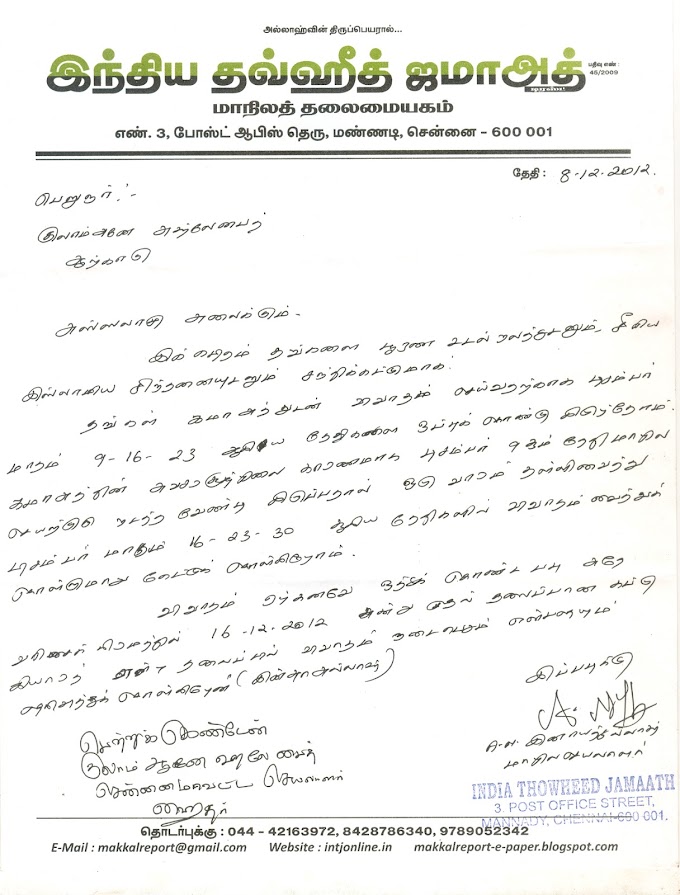 அல்லாஹ்வின் திருப்பெயரால்...
இந்திய தவ்ஹீத் ஜமாஅத்
பதிவு எண் :
45/2009
மாநிலத் தலைமையகம்
எண். 3, போஸ்ட் ஆபிஸ் தெரு, மண்ணடி, சென்னை - 600 001
தேதி : 8-12-2012.
பெறுநர் :-
அஸ்ஸலாமு அலைக்கும்.
இக் கடிதம் தங்களை பூரண உடல் நலத்துடனும், சீரிய
இஸ்லாமிய சிந்தனையுடனும் சந்திக்கட்டுமாக!
தங்கள் ஜமாஅத்துடன் விவாதம் செய்வதற்காக டிசம்பர்
மாதம் 9-16-23 ஆகிய தேதிகளை ஒப்புக் கொண்டு இருந்தோம்.
ஜமாஅத்தின் அவசர காரணமாக டிசம்பர் 9ஆம் தேதி மாநில
செயற்குழு நடத்த வேண்டி இருப்பதால் ஒரு வாரம் தள்ளிவைத்து
டிசம்பர் மாதம் 16-23-30 ஆகிய தேதிகளில் விவாதம் வைத்துக்
கொள்ளுமாறு கேட்டுக் கொள்கிறோம்.
விவாதம் ஏற்கனவே ஒத்துக் கொண்ட படி அதே
16-12-2012 அன்று முதல் தலைப்பான
என்ற தலைப்பில் விவாதம் நடைபெறும் என்பதையும்
(இன்ஷா அல்லாஹ்)
இப்படிக்கு
மாநில செயலாளர்
பெற்றுக் கொண்டேன்
சென்னை மாவட்ட செயலாளர்
INDIA THOWHEED JAMAATH
3, POST OFFICE STREET,
MANNADY, CHENNAI-600 001.
தொடர்புக்கு : 044 - 42163972, 8428786340, 9789052342
E-Mail : makkalreport@gmail.com Website : intjonline.in makkalreport-e-paper.blogspot.com